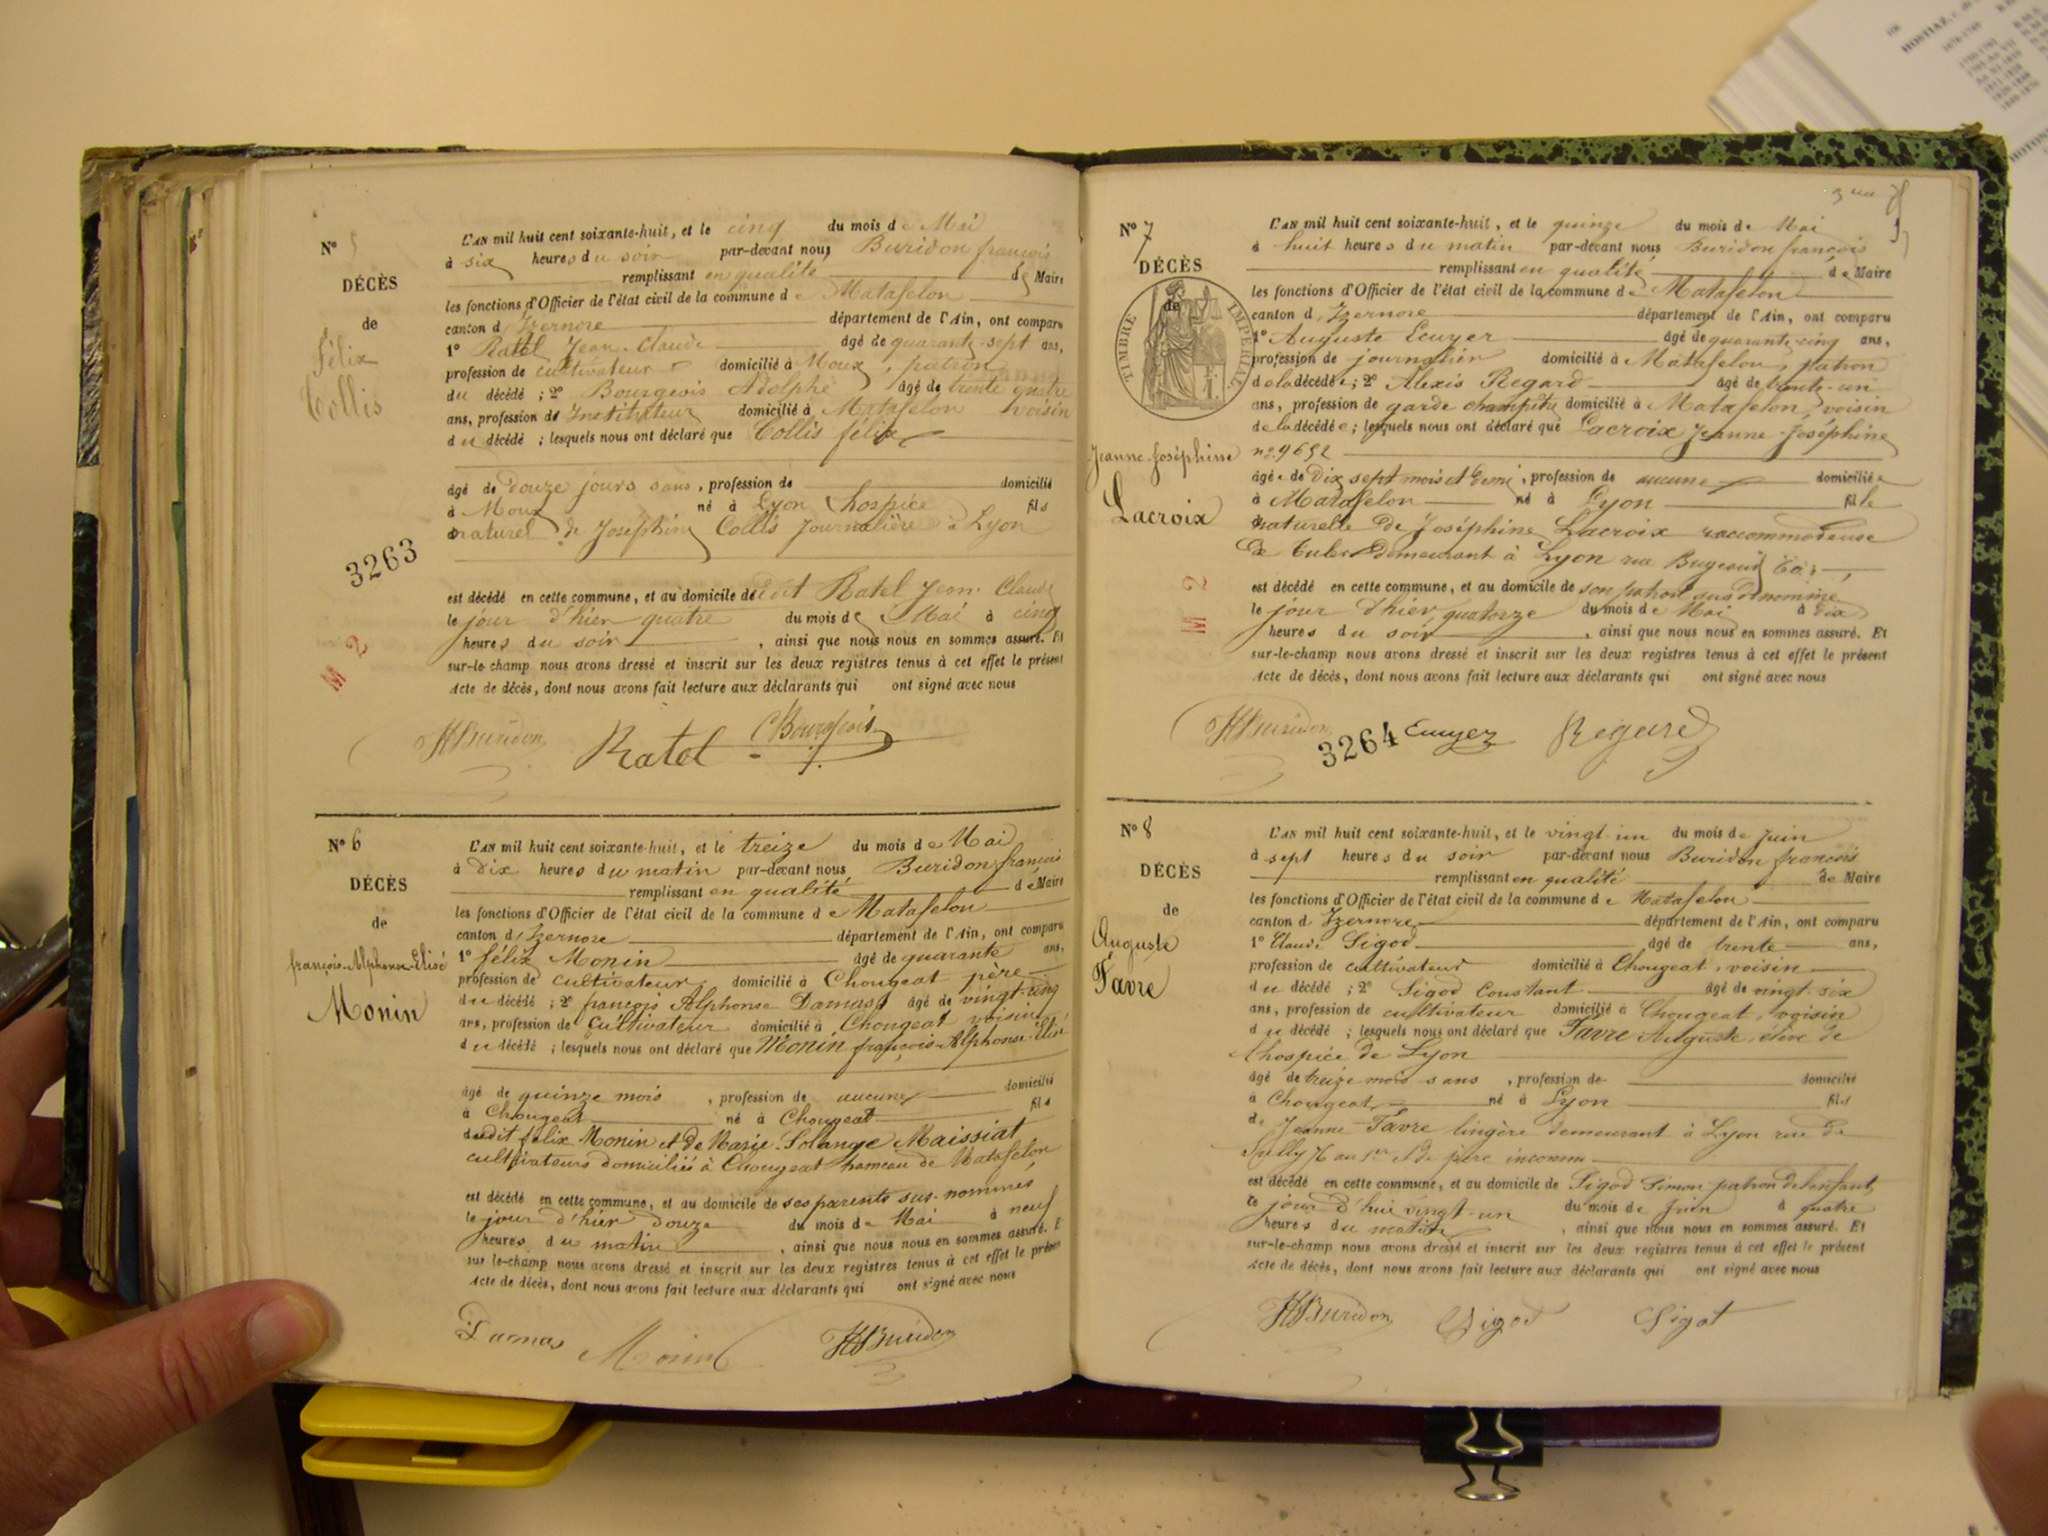 N° 5
DÉCÈS
de
Félix
Collis
3263
M 2
L'AN mil huit cent soixante-huit, et le cinq du mois de Mai
à six heures du soir par-devant nous Buridon françois
remplissant en qualité de Maire
les fonctions d'Officier de l'état civil de la commune de Matafelon
canton d'Izernore département de l'Ain, ont comparu
1° Ratel Jean-Claude âgé de quarante-sept ans,
profession de cultivateur domicilié à Moux, patron
du décédé ; 2° Bourgeois Adolphe âgé de trente quatre
ans, profession de Instituteur domicilié à Matafelon voisin
du décédé ; lesquels nous ont déclaré que Collis félix
âgé de Douze jours sans, profession de domicilié
à Moux né à Lyon hospice fils
naturel de Joséphine Collis Journalière à Lyon
est décédé en cette commune, et au domicile dudit Ratel Jean Claude
le jour d'hier quatre du mois de Mai à cinq
heures du soir, ainsi que nous nous en sommes assuré. Et
sur-le-champ nous avons dressé et inscrit sur les deux registres tenus à cet effet le présent
Acte de décès, dont nous avons fait lecture aux déclarants qui ont signé avec nous
Buridon Ratel Bourgeois
N° 6
DÉCÈS
de
françois-Alphonse-Elisé
Monin
L'AN mil huit cent soixante-huit, et le treize du mois de Mai
à Dix heures du matin par-devant nous Buridon françois
remplissant en qualité de Maire
les fonctions d'Officier de l'état civil de la commune de Matafelon
canton d'Izernore département de l'Ain, ont comparu
1° félix Monin âgé de quarante ans,
profession de cultivateur domicilié à Chougeat père
du décédé ; 2° françois Alphonse Damas âgé de vingt-cinq
ans, profession de Cultivateur domicilié à Chougeat voisin
du décédé ; lesquels nous ont déclaré que Monin françois-Alphonse-Elisé
âgé de quinze mois, profession de aucune domicilié
à Chougeat né à Chougeat fils
dudit félix Monin et de Marie-Solange Maissiat
cultivateurs domiciliés à Chougeat hameau de Matafelon
est décédé en cette commune, et au domicile de ses parents sus-nommés
le jour d'hier douze du mois de Mai à neuf
heures du matin, ainsi que nous nous en sommes assuré. E
sur le-champ nous avons dressé et inscrit sur les deux registres tenus à cet effet le présen
Acte de décès, dont nous avons fait lecture aux déclarants qui ont signé avec nous
Damas Monin Buridon
N° 7
DÉCÈS
de
TIMBRE IMPÉRIAL
Jeanne-Joséphine
Lacroix
M 2
L'AN mil huit cent soixante-huit, et le quinze du mois de Mai
à huit heures du matin par-devant nous Buridon françois
remplissant en qualité de Maire
les fonctions d'Officier de l'état civil de la commune de Matafelon
canton d'Izernore département de l'Ain, ont comparu
1° Auguste Ecuyer âgé de quarante-cinq ans,
profession de journalier domicilié à Matafelon, patron
de la décédée ; 2° Alexis Regard âgé de trente-un
ans, profession de garde champêtre domicilié à Matafelon, voisin
de la décédée ; lesquels nous ont déclaré que Lacroix Jeanne-Joséphine
n° 9652
âgée de Dix sept mois et demi, profession de aucune domicilié
à Matafelon né à Lyon fille
naturelle de Joséphine Lacroix raccommodeuse
de tulle demeurant à Lyon rue Bugeaud
est décédé en cette commune, et au domicile de son patron susdénommé
le jour d'hier quatorze du mois de Mai à dix
heures du soir, ainsi que nous nous en sommes assuré. Et
sur-le-champ nous avons dressé et inscrit sur les deux registres tenus à cet effet le présent
Acte de décès, dont nous avons fait lecture aux déclarants qui ont signé avec nous
Buridon 3264 Ecuyer Regard
N° 8
DÉCÈS
de
Auguste
Favre
L'AN mil huit cent soixante-huit, et le vingt-un du mois de Juin
à sept heures du soir par-devant nous Buridon françois
remplissant en qualité de Maire
les fonctions d'Officier de l'état civil de la commune de Matafelon
canton d'Izernore département de l'Ain, ont comparu
1° Claude Sigod âgé de trente ans,
profession de cultivateur domicilié à Chougeat, voisin
du décédé ; 2° Sigod Constant âgé de vingt-six
ans, profession de cultivateur domicilié à Chougeat, voisin
du décédé ; lesquels nous ont déclaré que Favre Auguste élève de
l'hospice de Lyon
âgé de treize mois sans, profession de domicilié
à Chougeat né à Lyon fils
de Jeanne Favre lingère demeurant à Lyon rue de
Sully et de père inconnu
est décédé en cette commune, et au domicile de Sigod Simon patron de l'enfant
le jour d'hui vingt-un du mois de Juin à quatre
heures du matin, ainsi que nous nous en sommes assuré. Et
sur-le-champ nous avons dressé et inscrit sur les deux registres tenus à cet effet le présent
Acte de décès, dont nous avons fait lecture aux déclarants qui ont signé avec nous
Buridon Sigod Sigot